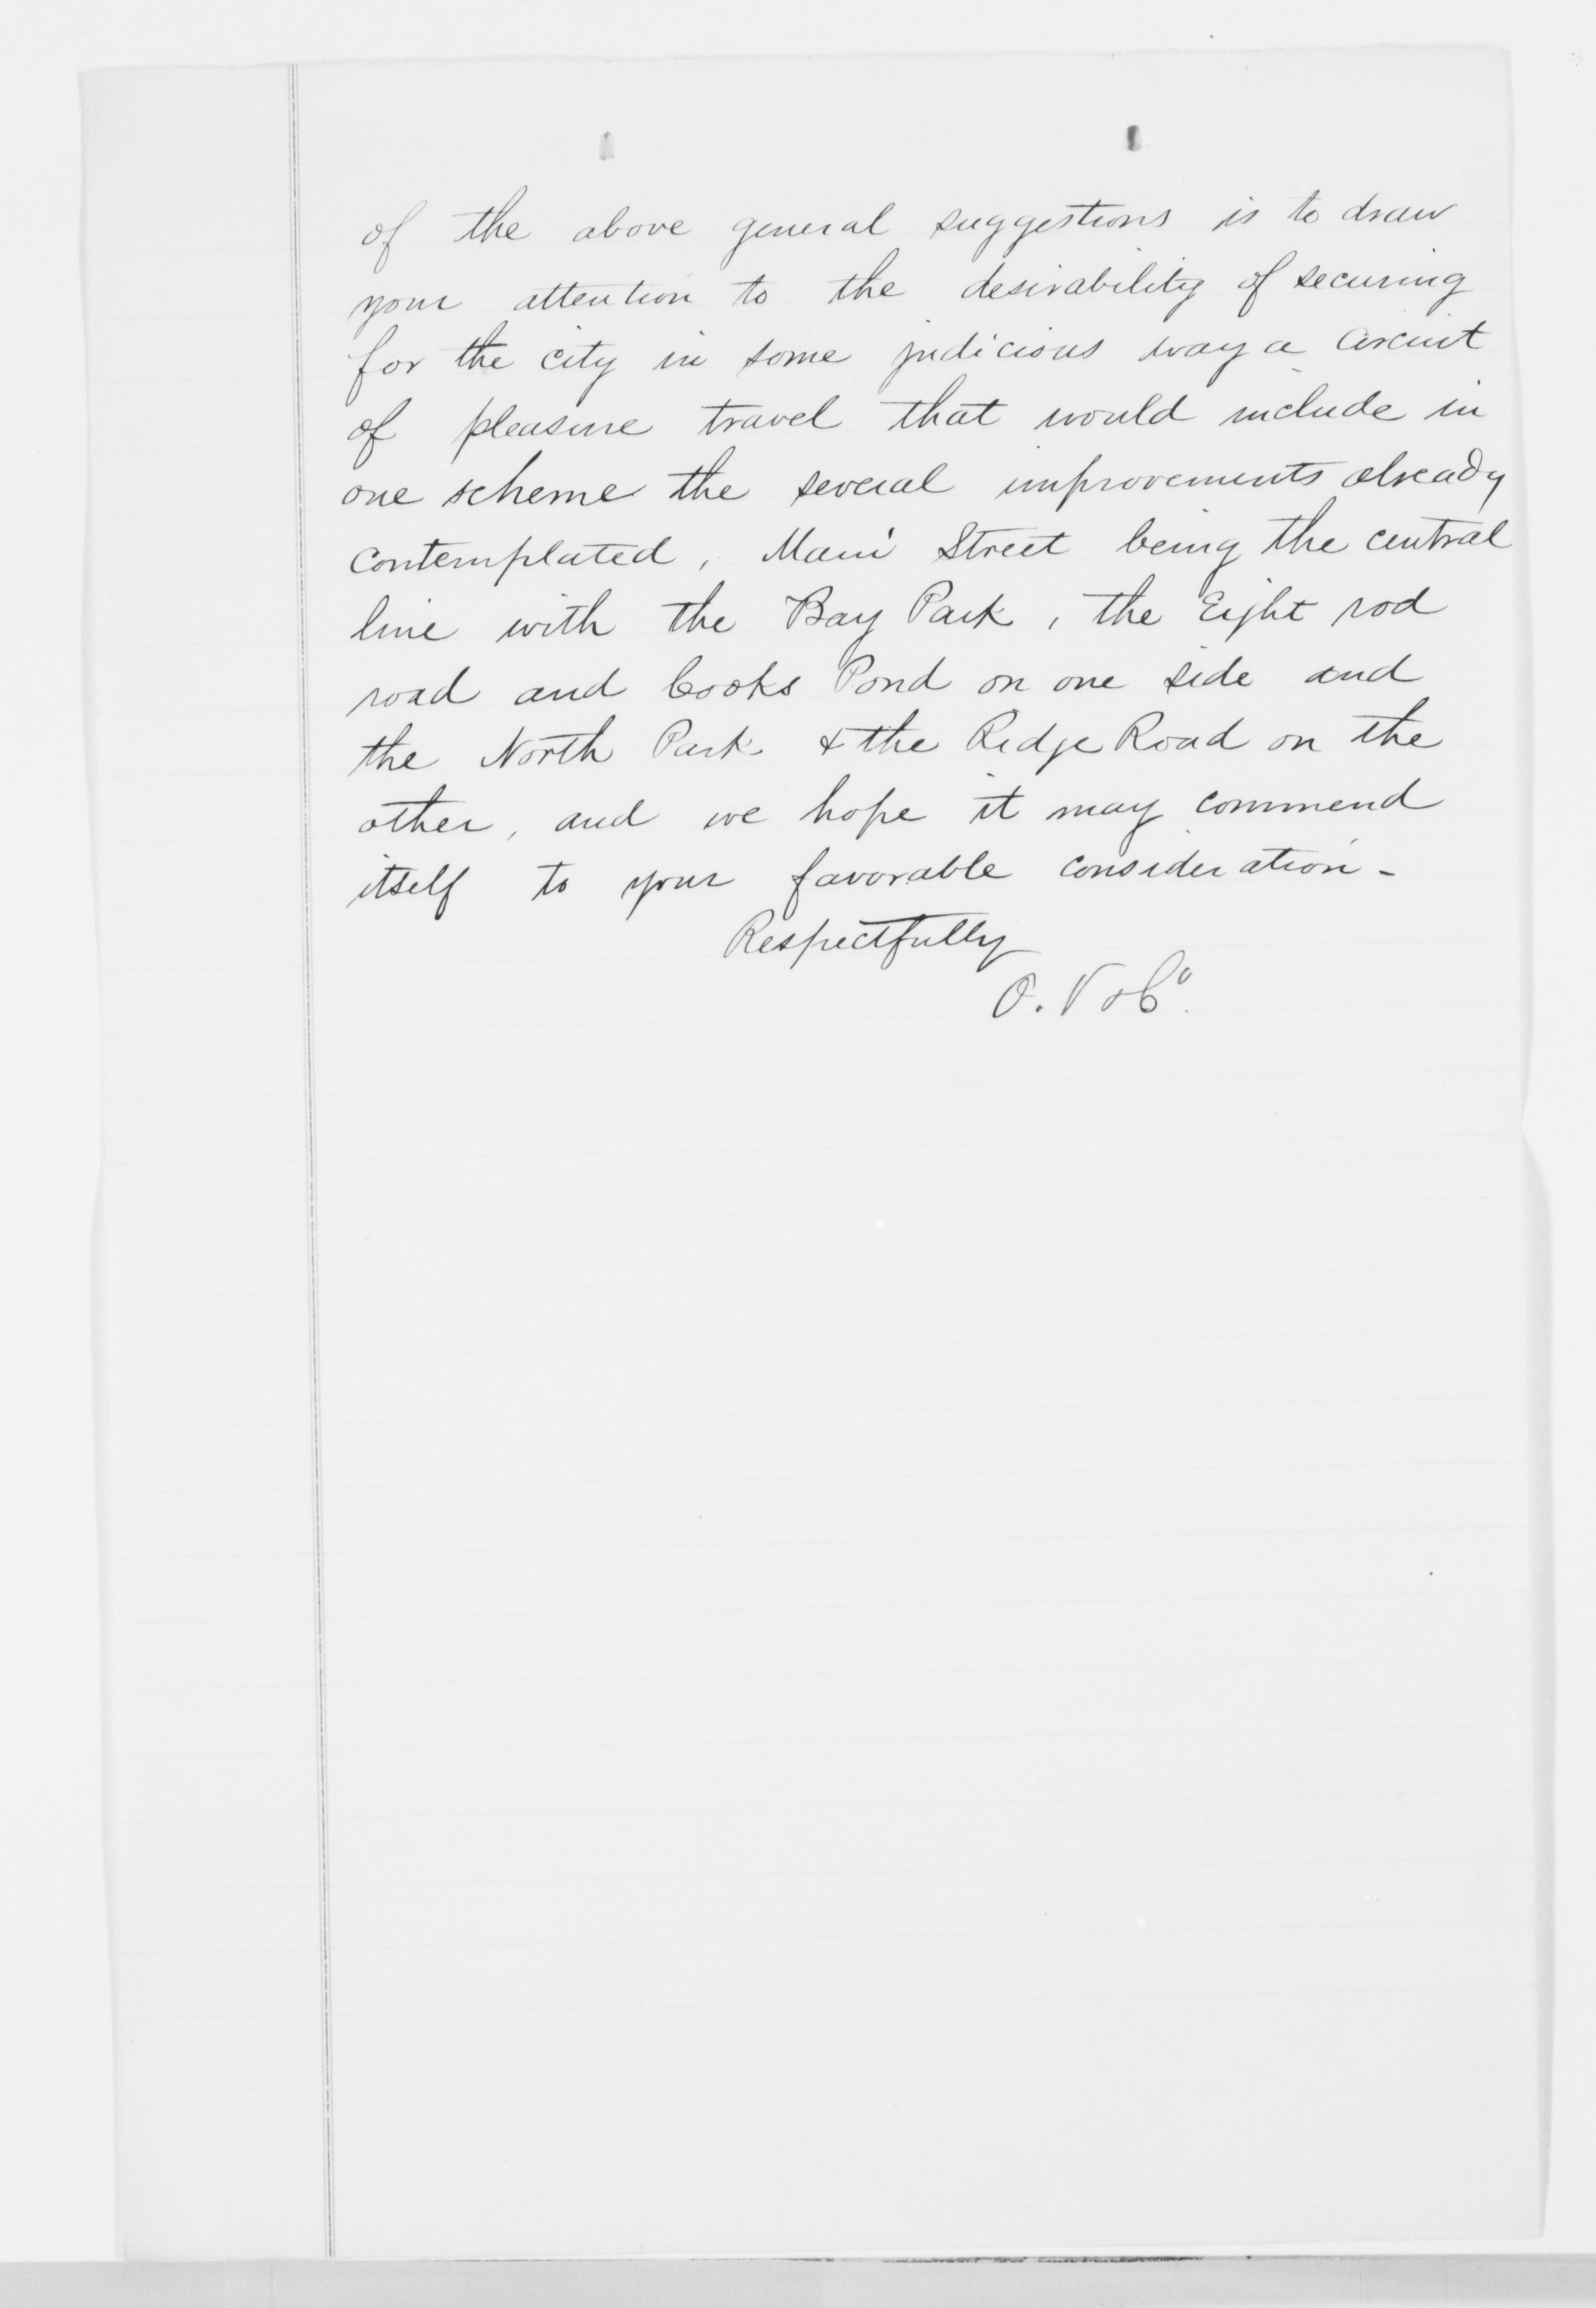 of the above general suggestions is to draw
your attention to the desirability of securing
for the city in some judicious way a circuit
of pleasure travel that would include in
one scheme the several improvements already
contemplated, Main Street being the central
line with the Bay Park, the Eight rod
road and Cooks Pond on one side and
the North Park & the Ridge Road on the
other, and we hope it may commend
itself to your favorable consideration -
Respectfully
O. V & Co.